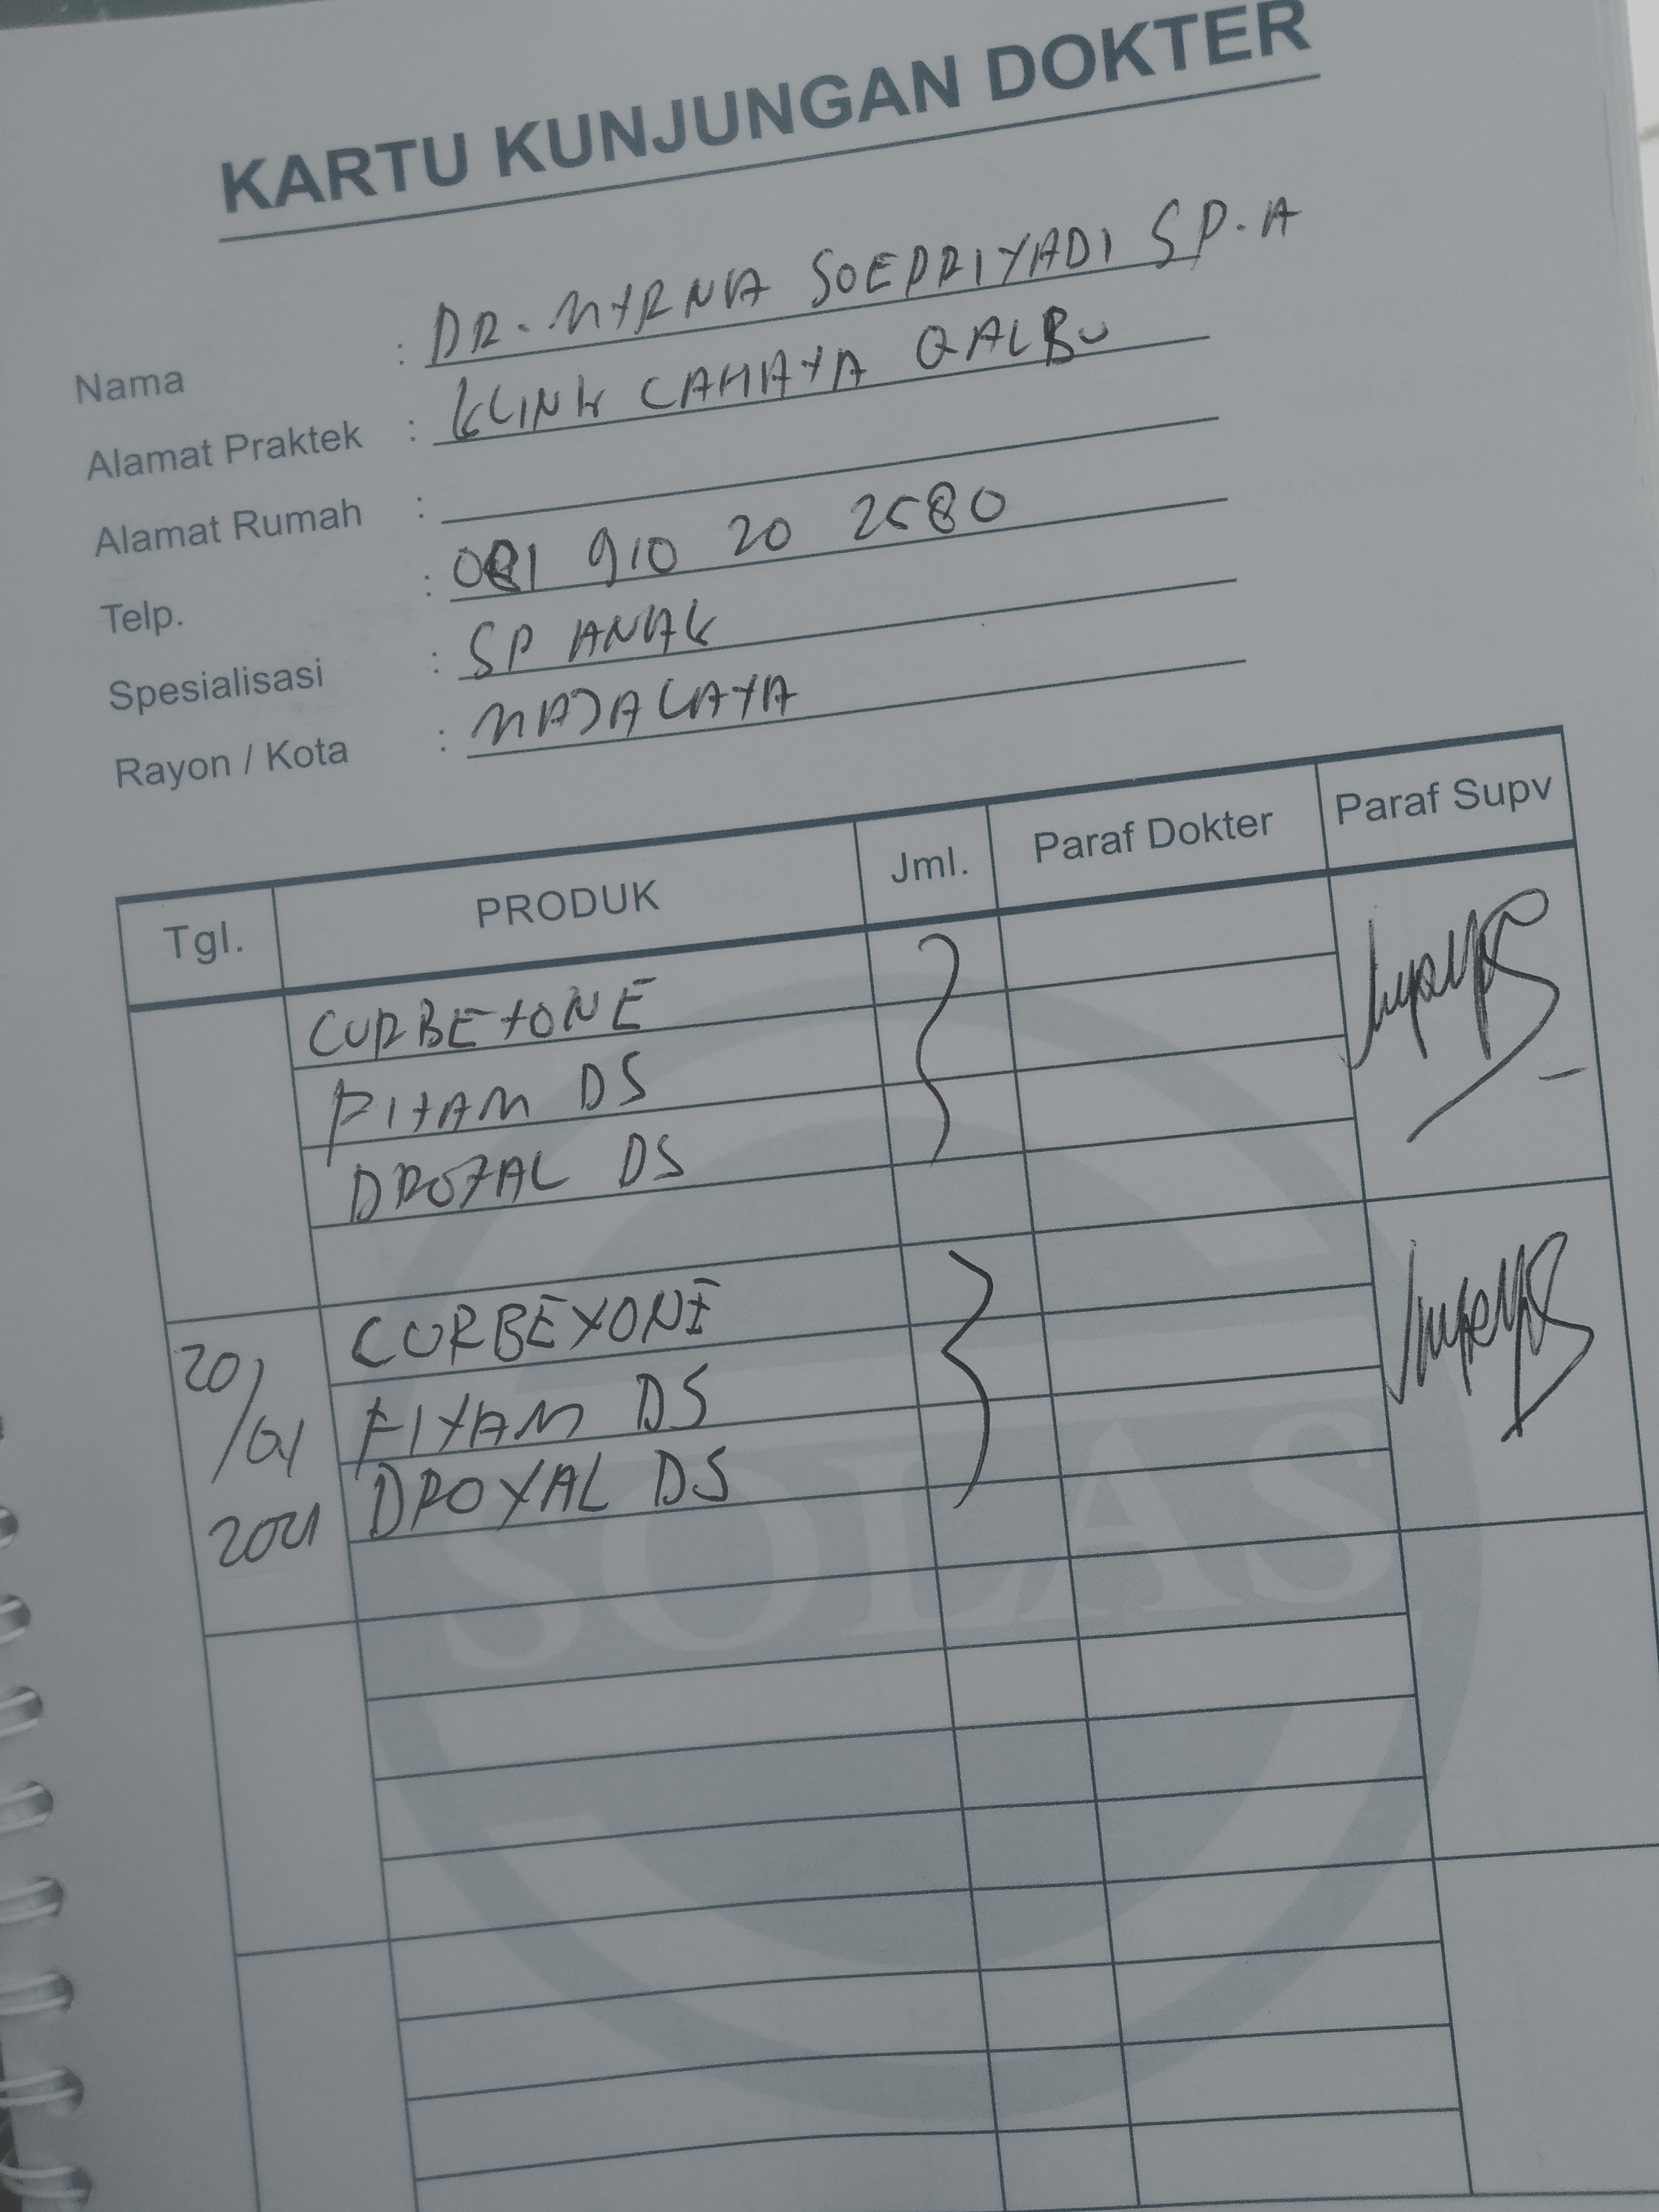 KARTU KUNJUNGAN DOKTER
Nama : DR. MYRNA SOEPRIYADI SP.A
Alamat Praktek : KLINIK CAHAYA QALBU
Alamat Rumah :
Telp. : 081 910 20 2580
Spesialisasi : SP ANAK
Rayon / Kota : MAJALAYA
Tgl. PRODUK Jml. Paraf Dokter Paraf Supv
CURBEXONE
FIXAM DS
DROXAL DS
20/01 2021
CURBEXONE
FIXAM DS
DROXAL DS
SOLAS